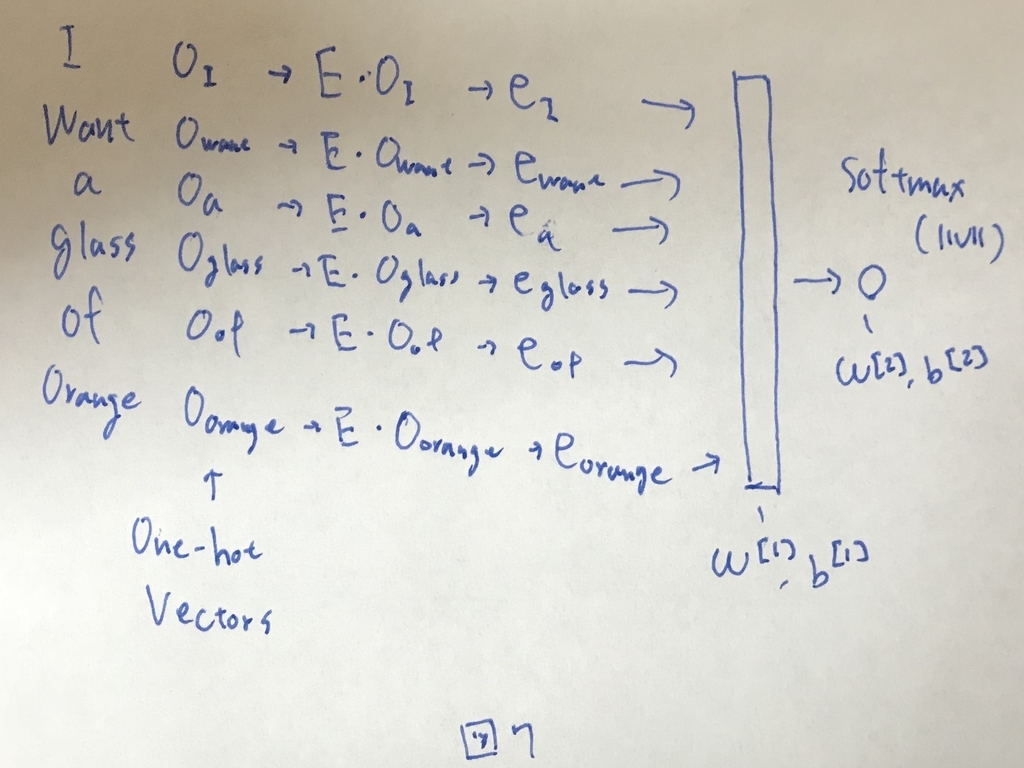 I O_I → E · O_I → e_I →
Want O_want → E · O_want → e_want →
a O_a → E · O_a → e_a →
glass O_glass → E · O_glass → e_glass →
of O_of → E · O_of → e_of →
Orange O_orange → E · O_orange → e_orange →
↑
One-hot
Vectors
w[1], b[1]
→ O
Softmax
(||V||)
w[2], b[2]
図7